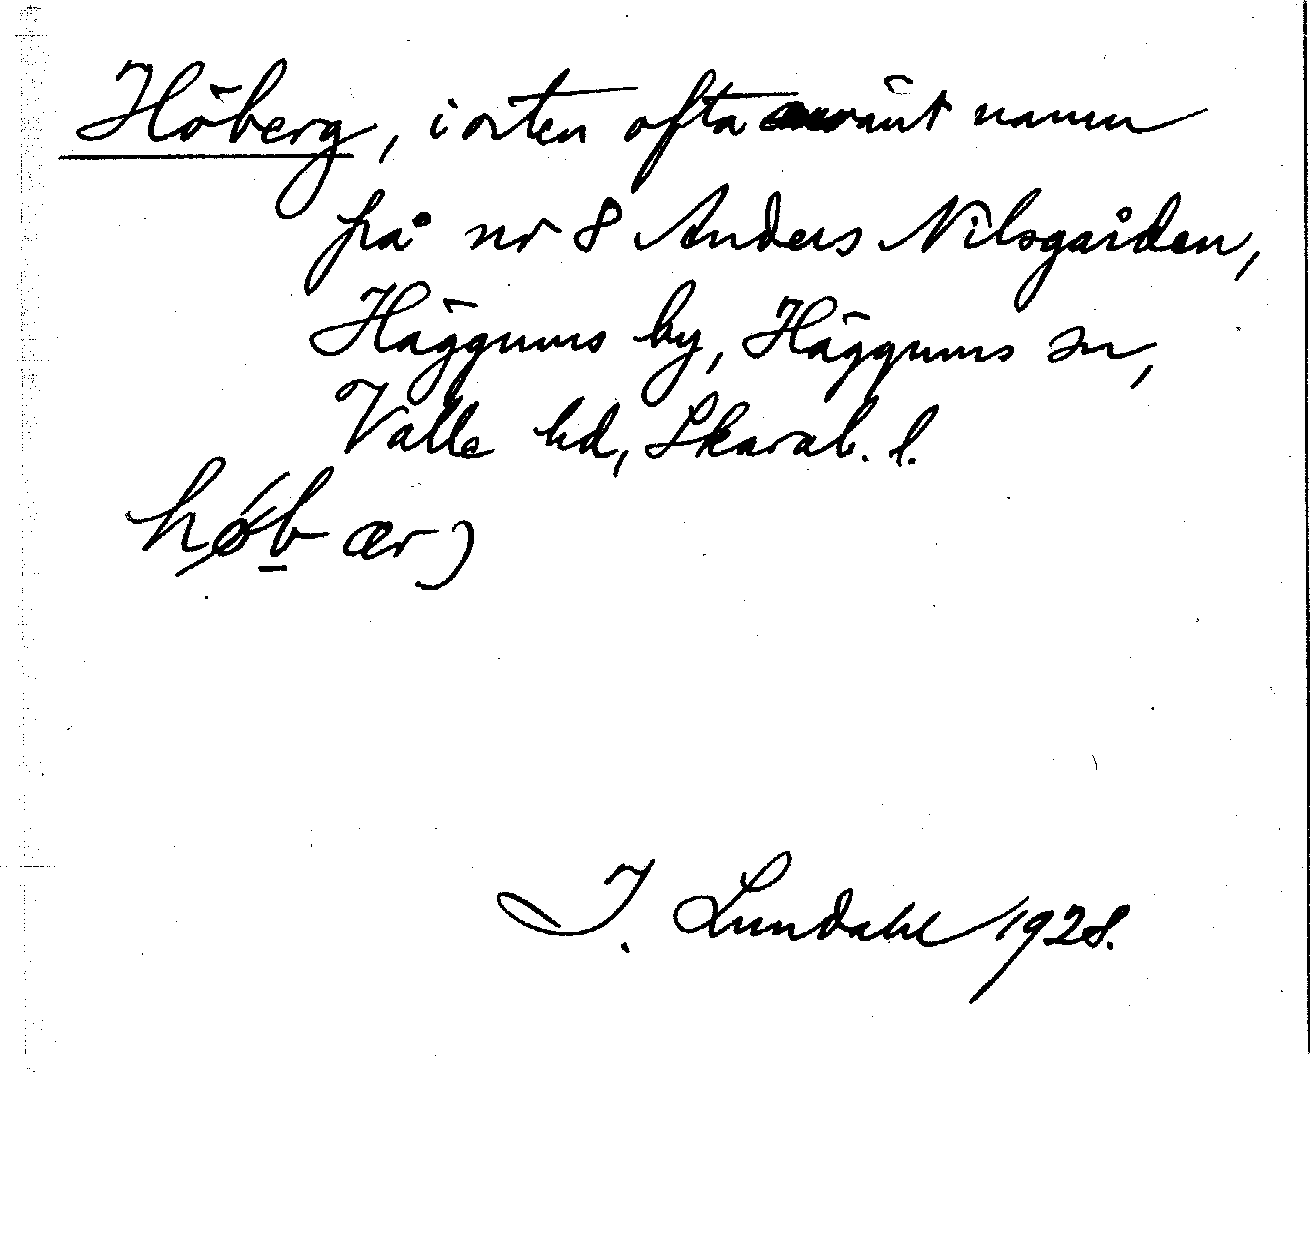 Höberg, i orten ofta använt namn
på nr 8 Anders Nilsgården,
Häggums by, Häggums sn,
Valle hd, Skarab. l.
høb ær)
I. Lundahl 1928.